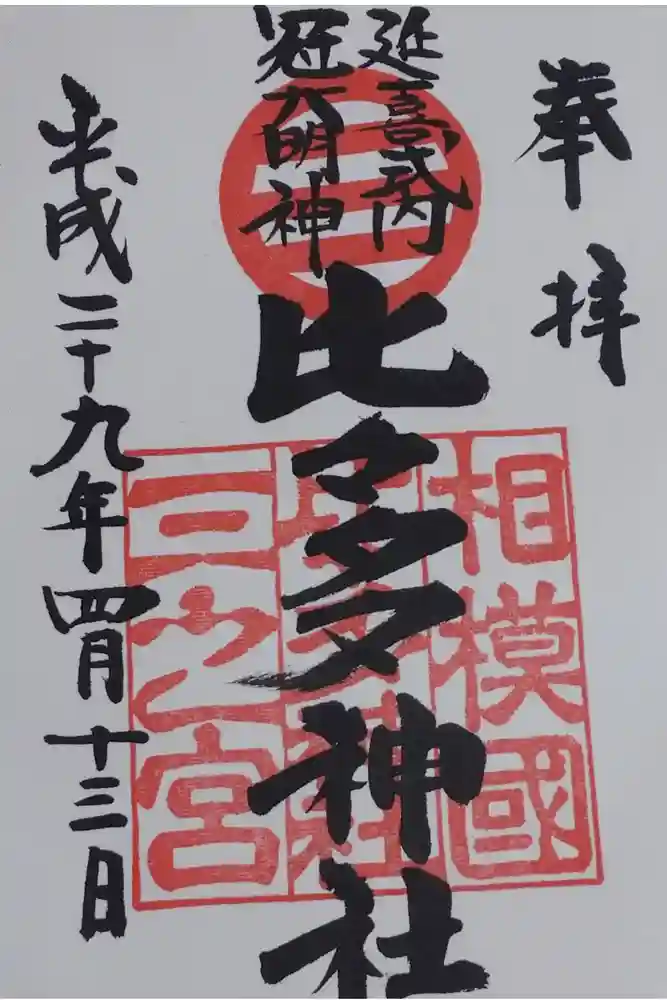 奉拝
延喜式内
冠大明神
比々多神社
平成二十九年四月十三日
相模國
三之宮